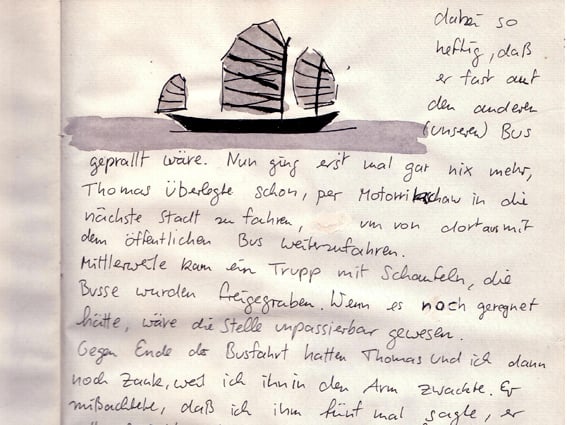 dabei so
heftig, daß
er fast auf
den anderen
(unseren) Bus
geprallt wäre. Nun ging erst mal gar nix mehr,
Thomas überlegte schon, per Motorrikschaw in die
nächste Stadt zu fahren, um von dort aus mit
dem öffentlichen Bus weiterzufahren.
Mittlerweile kam ein Trupp mit Schaufeln, die
Busse wurden freigegraben. Wenn es noch geregnet
hätte, wäre die Stelle unpassierbar gewesen.
Gegen Ende der Busfahrt hatten Thomas und ich dann
noch Zank, weil ich ihn in den Arm zwackte. Er
mißachtete, daß ich ihm fünf mal sagte, er